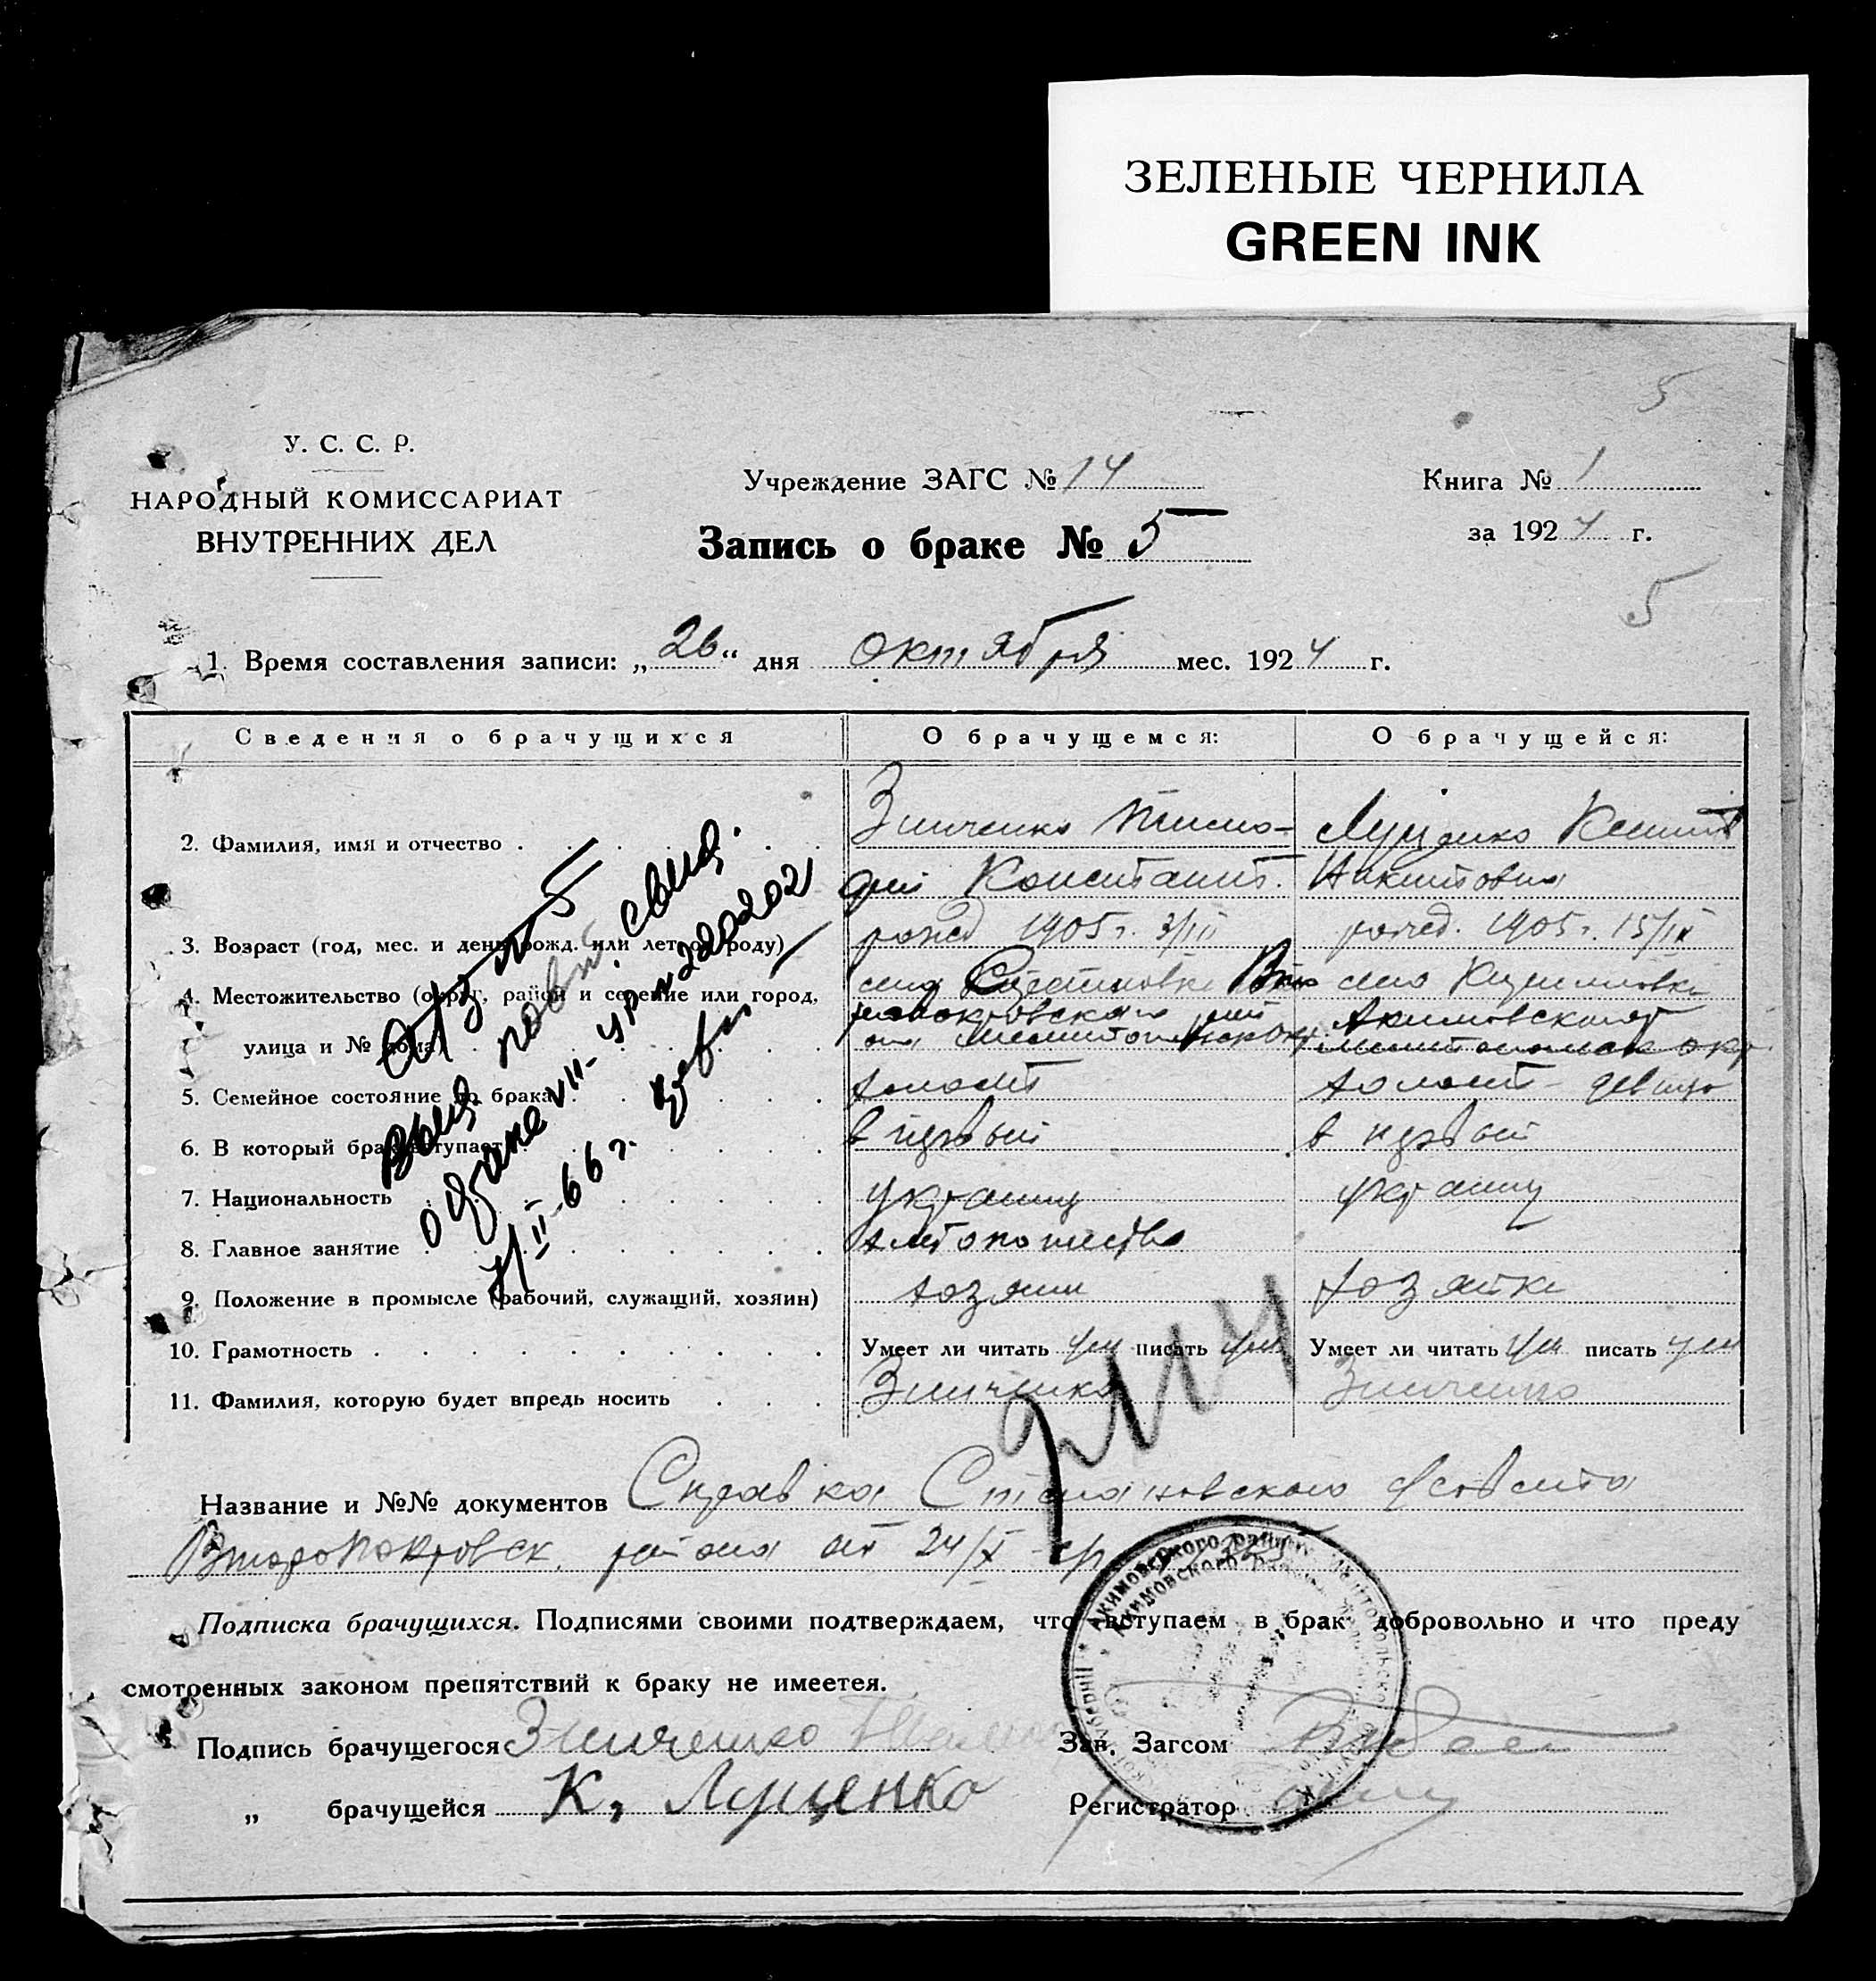 ЗЕЛЕНЫЕ ЧЕРНИЛА
GREEN INK
5
У. С. С. Р.
НАРОДНЫЙ КОМИССАРИАТ
ВНУТРЕННИХ ДЕЛ
Учреждение ЗАГС № 14
Книга № 1
Запись о браке № 5
за 1924 г.
5
1. Время составления записи: „26“ дня октября мес. 1924 г.
Сведения о брачущихся
О брачущемся:
О брачущейся:
2. Фамилия, имя и отчество
Зинченко Тимо-
фей Констант.
Луценко Ксения
Никитовна
3. Возраст (год, мес. и день рожд. или лет от роду)
рожд 1905 г. 3/III
рожд. 1905 г. 15/IX
4. Местожительство (округ, район и селение или город,
улица и № дома)
село Степановка
село
Акимовского
5. Семейное состояние до брака
холост
холост - девица
6. В который брак вступает
в первый
в первый
7. Национальность
украинец
украинц
8. Главное занятие
хлебопашество
9. Положение в промысле (рабочий, служащий, хозяин)
хозяин
хозяйка
10. Грамотность
Умеет ли читать ум писать ум
Умеет ли читать ум писать ум
11. Фамилия, которую будет впредь носить
Зинченко
Зинченко
а/з № 5
Выд повт. свид.
о браке VII-УР № 220202
II-66 г.
Название и №№ документов Справка Степановского сельсовета
Второпокровск. района от 24/X с/г
Подписка брачущихся. Подписями своими подтверждаем, что вступаем в брак добровольно и что преду
смотренных законом препятствий к браку не имеетея.
Подпись брачущегося Зинченко
Зав. Загсом
„ брачущейся К, Луценко
Регистратор
Акимовского